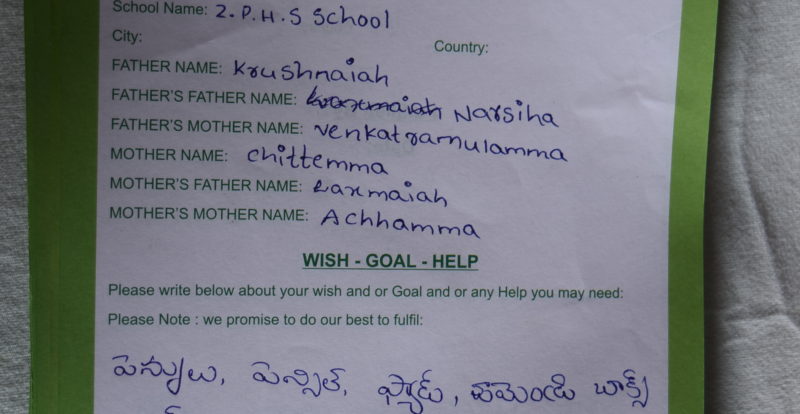 School Name: Z.P.H.S School
City: Country:
FATHER NAME: Krushnaiah
FATHER'S FATHER NAME: Narsiha
FATHER'S MOTHER NAME: Venkatramulamma
MOTHER NAME: Chittemma
MOTHER'S FATHER NAME: Laxmaiah
MOTHER'S MOTHER NAME: Achhamma
WISH - GOAL - HELP
Please write below about your wish and or Goal and or any Help you may need:
Please Note : we promise to do our best to fulfil:
పెన్నులు, పెన్సిల్, ప్యాడ్, బాక్స్